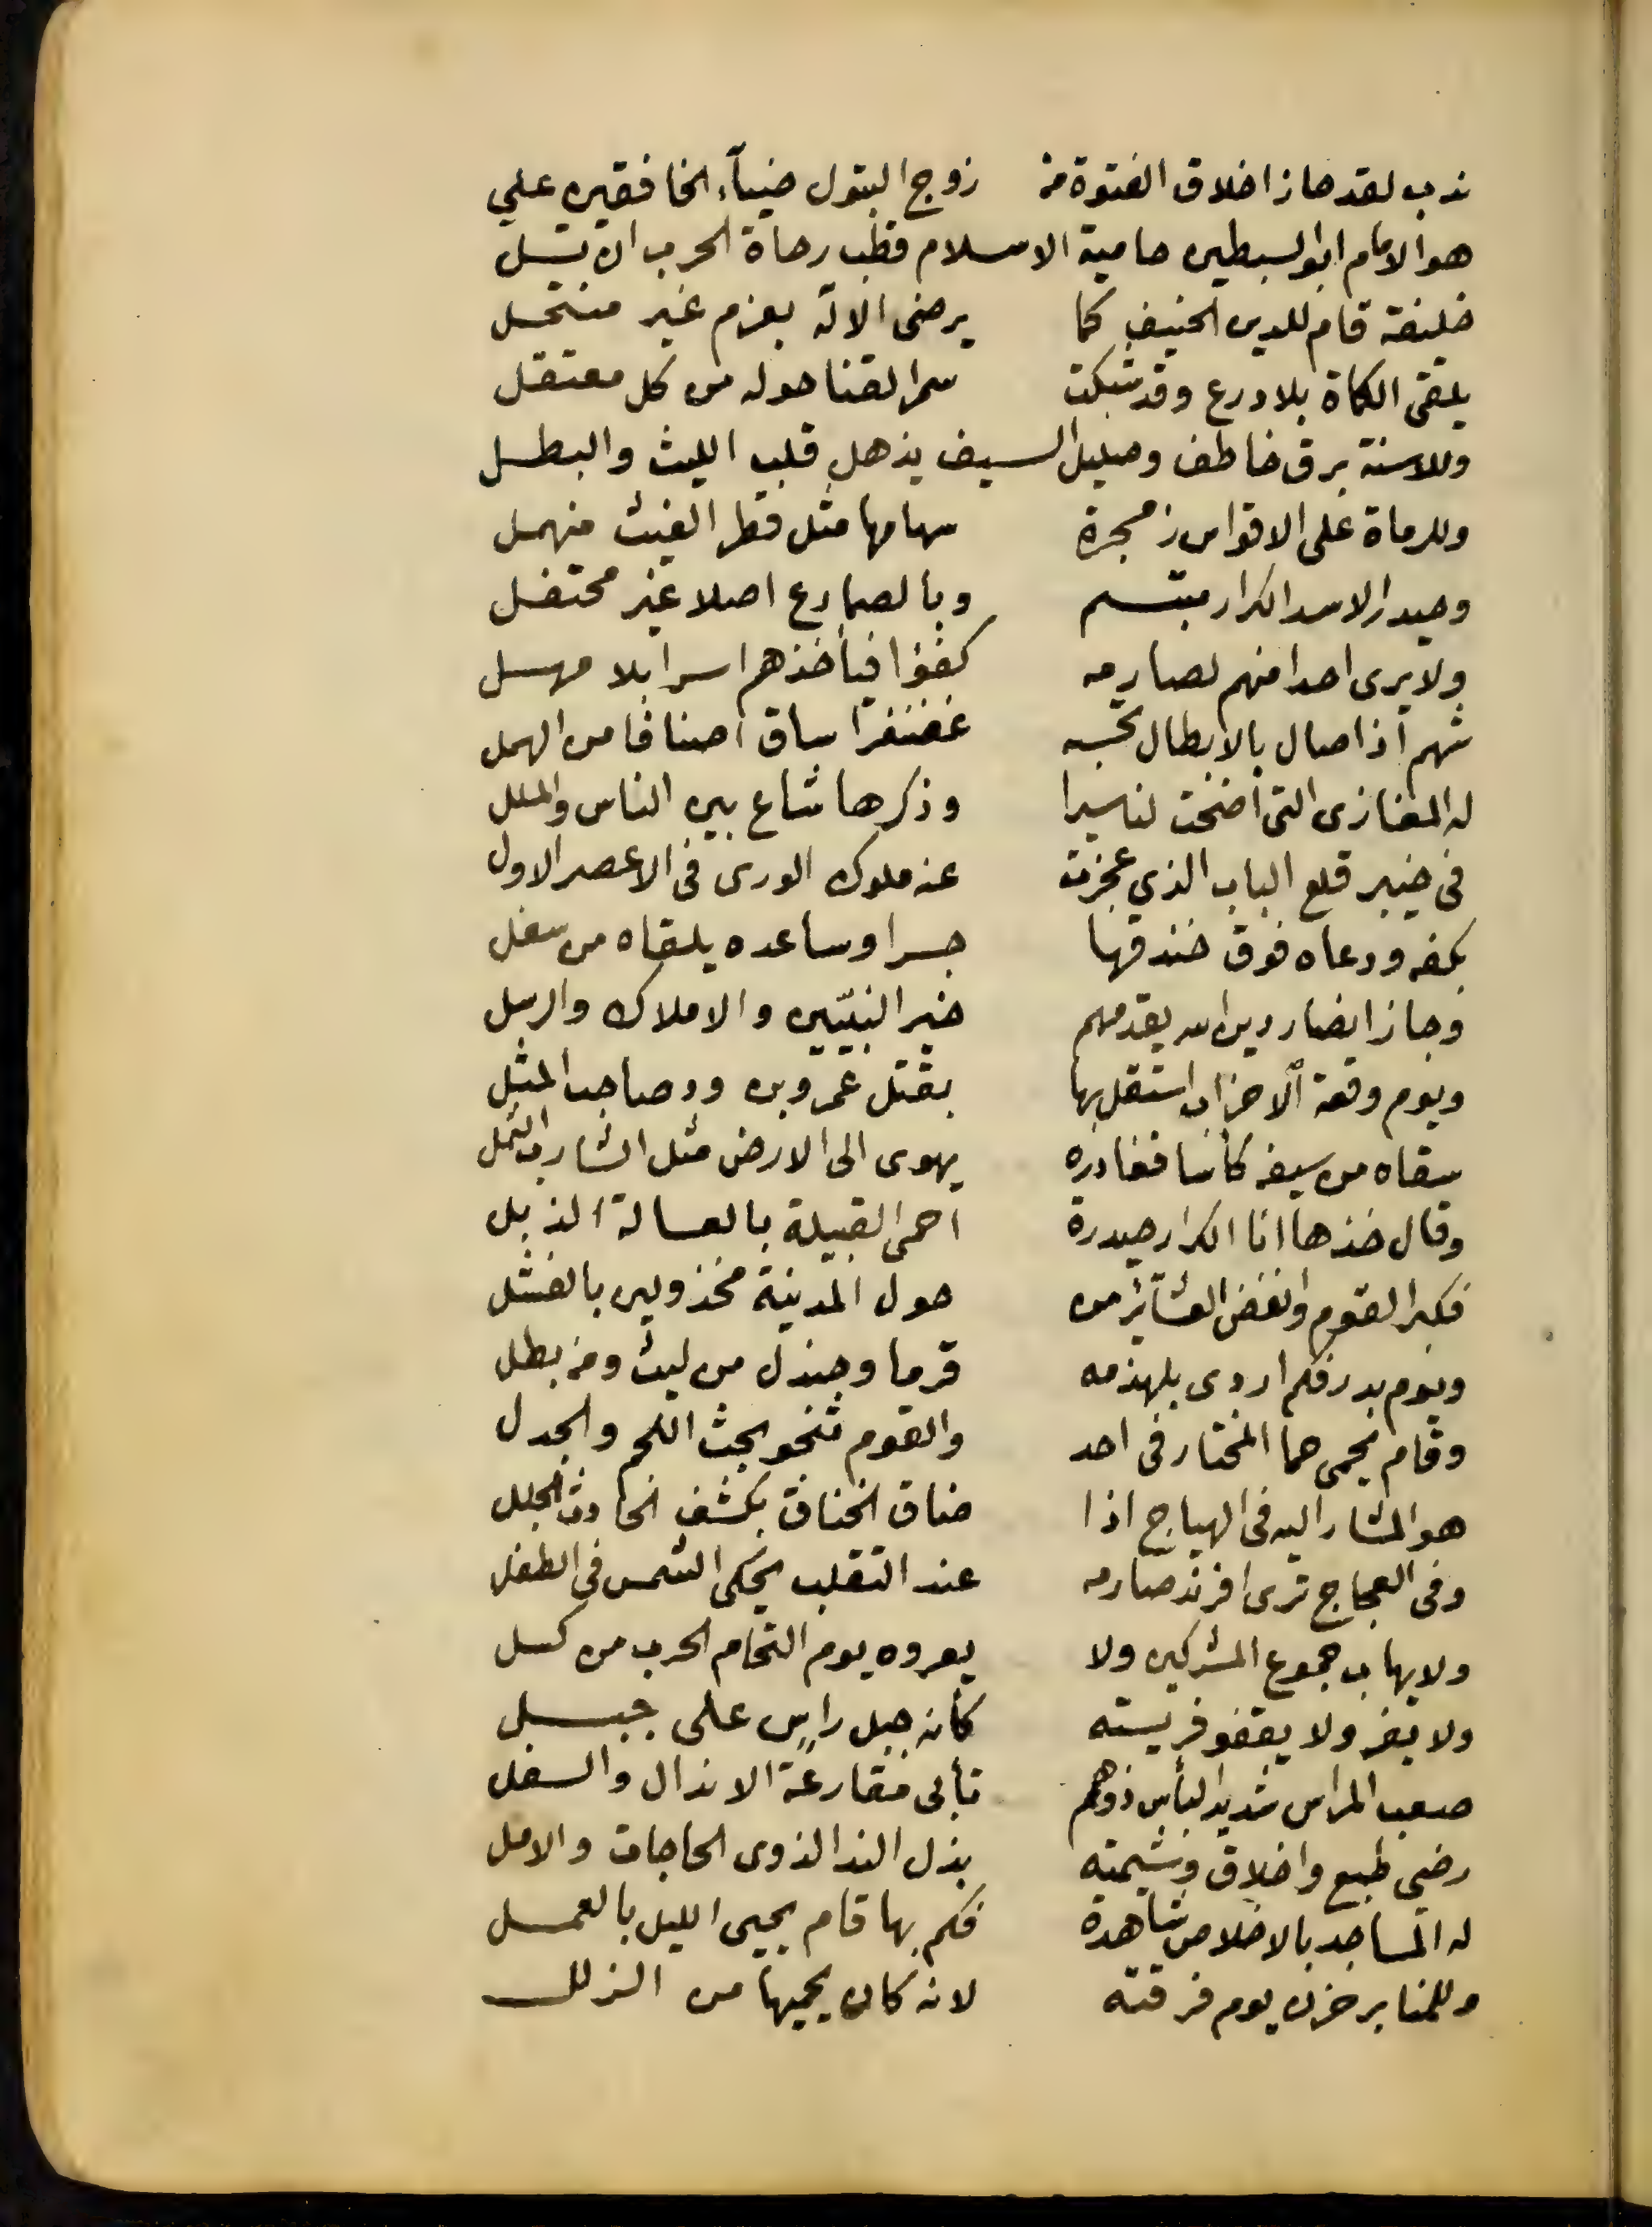 ندب لقد حاز اخلاق الفتوة من زوج البتول ضيآء الخافقين علي
هو الامام ابو السبطين حامية الاسلام قطب رحاة الحرب ان تسل
خليفة قام للدين الحنيف كما يرضى الاله بعزم غير منتحل
يلقى الكماة بلا درع وقد شبكت سمر القنا حوله من كل معتقل
وللاسنة برق خاطف وصليل السيف يذهل قلب الليث والبطل
وللرماة على الاقواس زمجرة سهامها مثل قطر الغيث منهمل
وحيدر الاسد الكرار مبتسم وبالصمادع اصلا غير محتفل
ولا يرى احدا منهم لصارمه كفؤا فيأخذهم اسرا بلا مهل
شهم اذا صال بالابطال تحسبه غضنفرا ساق اصنافا من الهمل
له المغازى التى اضحت لنا سيرا وذكرها شاع بين الناس والملل
فى خيبر قلع الباب الذي عجزت عنه ملوك الورى فى الاعصر الاول
بكفه ودعاه فوق خندقها جسرا وساعده يلقاه من سفل
وجاز انصار دين الله يقدمهم خير النبيّين والاملاك والرسل
ويوم وقعة الاحزاب استقل بها بقتل عمرو بن ود صاحب المثل
سقاه من سيفه كأسا فغادره يهوى الى الارض مثل الشارب الثمل
وقال خذها انا الكرار حيدرة احمى القبيلة بالعسالة الذبل
فكبر القوم وانفض العشائر من حول المدينة مخذولين بالفشل
ويوم بدر فكم اردى بلهذمه قرما وجندل من ليث ومن بطل
وقام يحمى حما المختار فى احد والقوم تنحو بحث اللجم والجدل
هو المشار اليه فى الهياج اذا ضاق الخناق بكشف الحادث الجلل
وفى العجاج ترى افرند صارمه عند التقلب يحكى الشمس فى الطفل
ولا يهاب جموع المشركين ولا يعروه يوم التحام الحرب من كسل
ولا يفر ولا يقفو فريسته كأنه جبل راسٍ على جبل
صعب المراس شديد البأس ذو همم تأبى مقارعة الاندال والسفل
رضي طبع واخلاق وشيمته بذل الندا لذوى الحاجات والامل
له المساجد بالاخلاص شاهدة فكم بها قام يحيى الليل بالعمل
وللمنابر حزن يوم فرقته لانه كان يحميها من الزلل